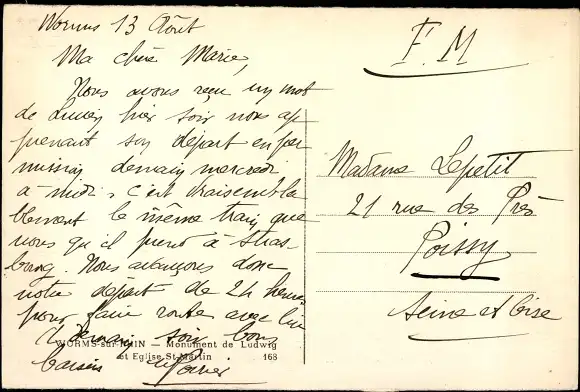 Worms 13 Août
Ma chère Marie,
Nous avons reçu un mot
de Lucien hier soir nous ap
prenant son départ en per
mission demain mercredi
à midi, c'est vraisembla
blement le même train que
nous qu'il prend à Stras
bourg. Nous avançons donc
notre départ de 24 heures
pour faire route avec lui
à demain soir bons
baisers
WORMS-sur-RHIN — Monument de Ludwig
et Eglise St-Martin 168
F.M
Madame Lepetit
21 rue des Prés
Poissy
Seine et Oise